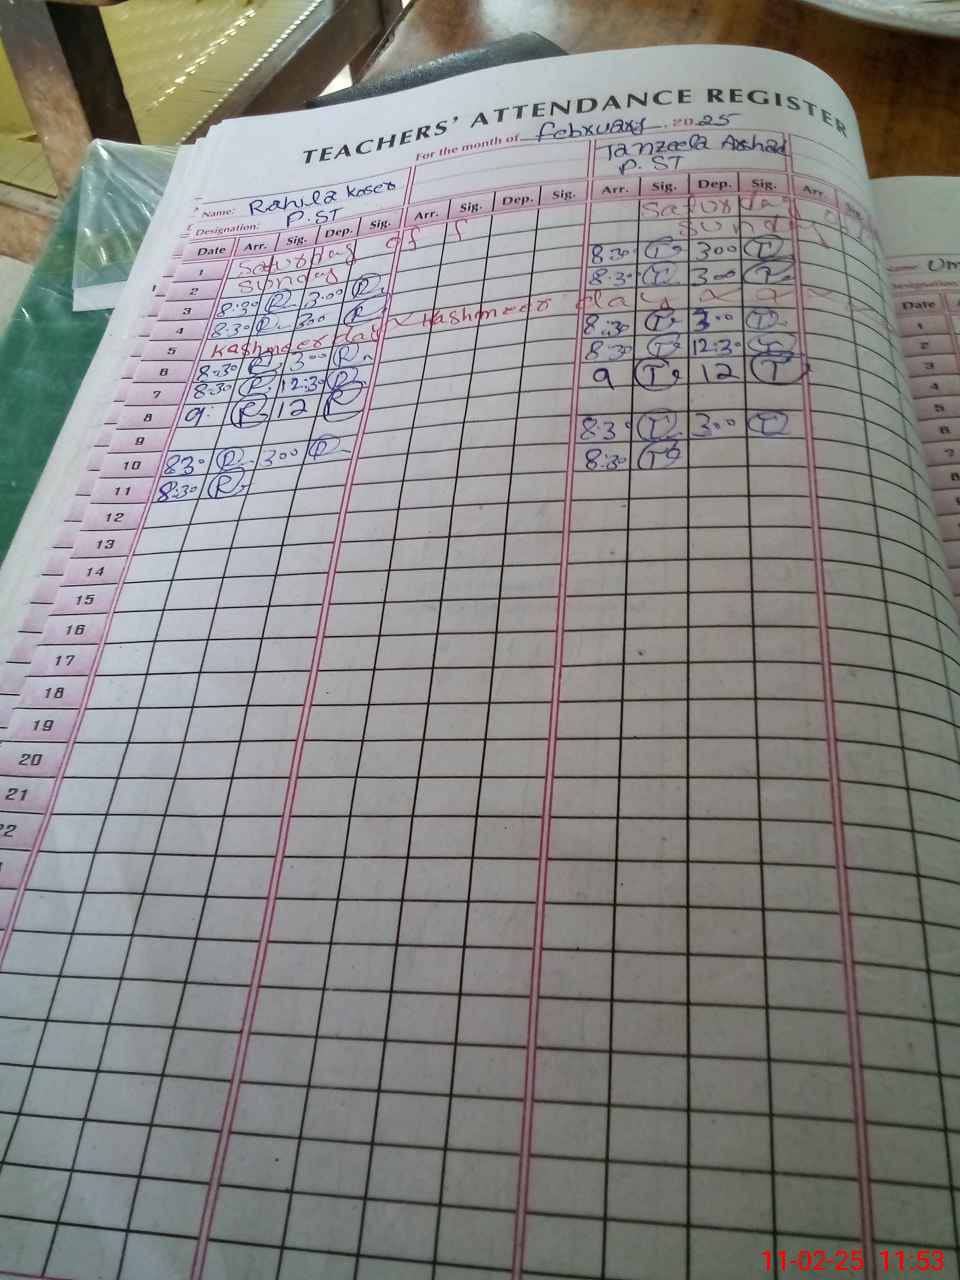 TEACHERS' ATTENDANCE REGISTER
For the month of February 2025
Name: Rahila Koser Tanzeela Arshad
Designation: P.ST P.ST
Date Arr. Sig. Dep. Sig. Arr. Sig. Dep. Sig. Arr. Sig. Dep. Sig. Arr.
1 Saturday off Saturday
2 Sunday Sunday
3 8:30 R 3:00 R 8:30 T 300 T
4 8:30 R 300 R 8:30 T 300 T
5 Kashmeer day Kashmeer day
6 8:30 R 300 R 8:30 T 3:00 T
7 8:30 R 12:30 R 8:30 T 12:30 T
8 9: R 12 R 9 T 12 T
9
10 830 R 300 R 8:30 T 300 T
11 8:30 R 8:30 T
12
13
14
15
16
17
18
19
20
21
22
Name Um
Designation
Date
1
2
3
4
5
6
7
8
11-02-25 11:53